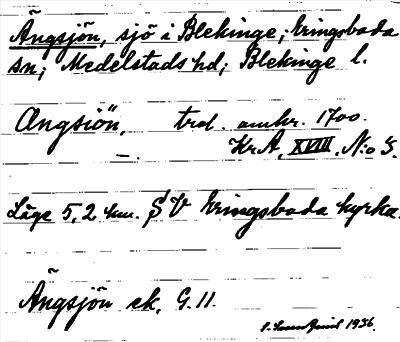 Ängsjön, sjö i Blekinge, kringsboda
sn; Medelstads hd; Blekinge l.
Angsiön, trol. omkr. 1700.
Kr.A, XVIII, N:o 3.
Läge 5,2 km. SV kringsboda kyrka.
Ängsjön ek. G. 11.
1936.